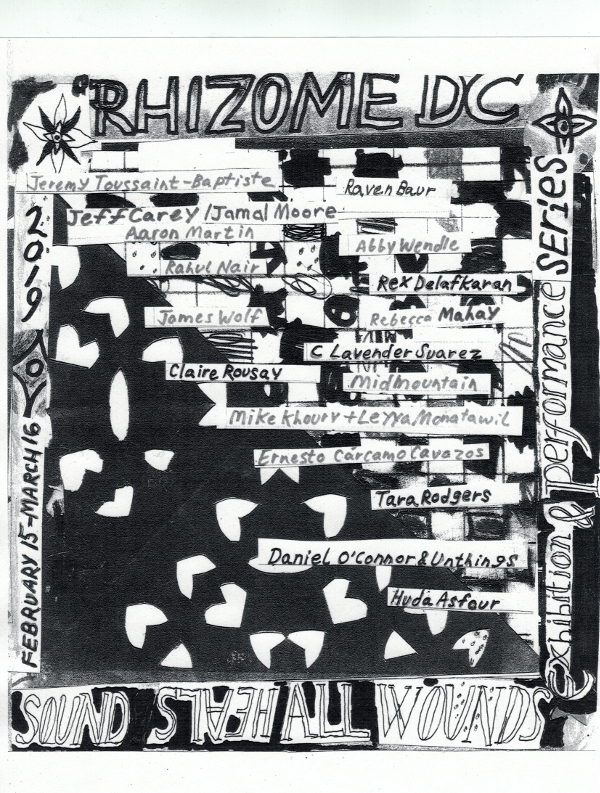 RHIZOME DC
Jeremy Toussaint-Baptiste
Raven Baur
Jeff Carey / Jamal Moore
Aaron Martin
Abby Wendle
Rahul Nair
Rex Delafkaran
James Wolf
Rebecca Mahay
C Lavender Suarez
Claire Rousay
Mid Mountain
Mike Khoury + Leyya Monatawil
Ernesto Cárcamo Cavazos
Tara Rodgers
Daniel O'Connor & Unthings
Huda Asfour
2019
FEBRUARY 15-MARCH 16
Exhibition & Performance SERIES
SOUND HEALS ALL WOUNDS